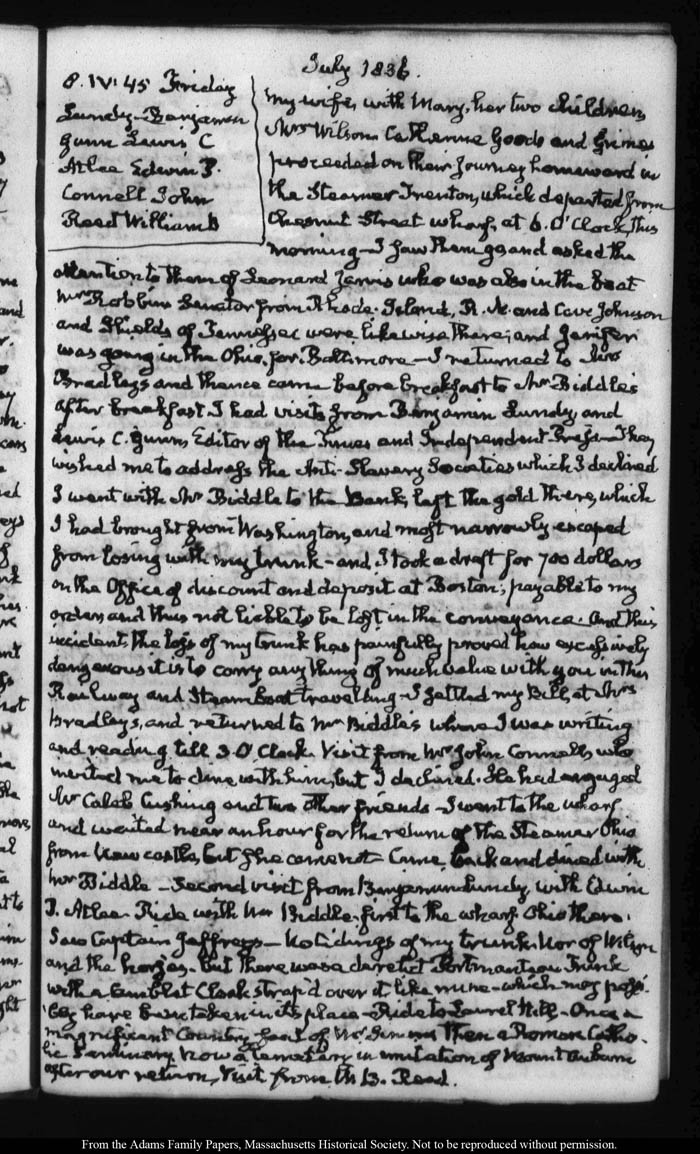 July 1836.
8. IV: 45 Friday
Lundy-Benjamin
Gunn Lewis C
Atlee Edwin P.
Connell John
Reed William B
My wife, with Mary, her two children
Mrs Wilson Catherine Goods and Grimes
proceeded on their Journey homeward in
the Steamer Trenton, which departed from
Chesnut Street wharf, at 6. O'Clock, this
morning—I saw them go and asked the
attention to them of Leonard Jarvis who was also in the boat
Mr Robbins Senator from Rhode-Island, R. M. and Cave Johnson
and Shields of Tennessee were likewise there; and Jenifer
was going in the Ohio, for Baltimore—I returned to Mrs
Bradleys and thence came before breakfast to Mr Biddle's
After breakfast I had visits from Benjamin Lundy and
Lewis C. Gunn, Editor of the Times and Independent Press—They
wished me to address the Anti-Slavery Societies which I declined
I went with Mr Biddle to the Bank, left the gold there, which
I had brought from Washington, and most narrowly escaped
from losing with my trunk—and I took a draft for 700 dollars
on the Office of discount and deposit at Boston; payable to my
order, and thus not liable to be lost in the conveyance. And this
accident, the loss of my trunk has painfully proved how excessively
dangerous it is to carry any thing of much value with you in this
Railway and Steam boat travelling—I settled my Bill, at Mrs
Bradleys, and returned to Mr Biddle's where I was writing
and reading till 3. O'Clock. Visit from Mr John Connell, who
invited me to dine with him, but I declined. He had engaged
Mr Caleb Cushing and two other friends—I went to the wharf
and waited near an hour for the return of the Steamer Ohio
from New castle, but she came not— Came back and dined with
Mr Biddle—Second visit from Benjamin Lundy, with Edwin
P. Atlee. Ride with Mr Biddle. first to the wharf Ohio there.
Saw Captain Jeffreys—No tidings of my trunk. Nor of Wilson
and the horses. But there was a derelict Portmanteau Trunk
with a Camblet Cloak strap'd over it like mine—which may possi-
bly have been taken in its place—Ride to Laurel Hill—Once a
magnificent Country-Seat of Mr Simms Then a Roman Catho-
lic Seminary now a Cemetary in imitation of Mount Auburn
after our return, Visit from W B. Reed.
From the Adams Family Papers, Massachusetts Historical Society. Not to be reproduced without permission.